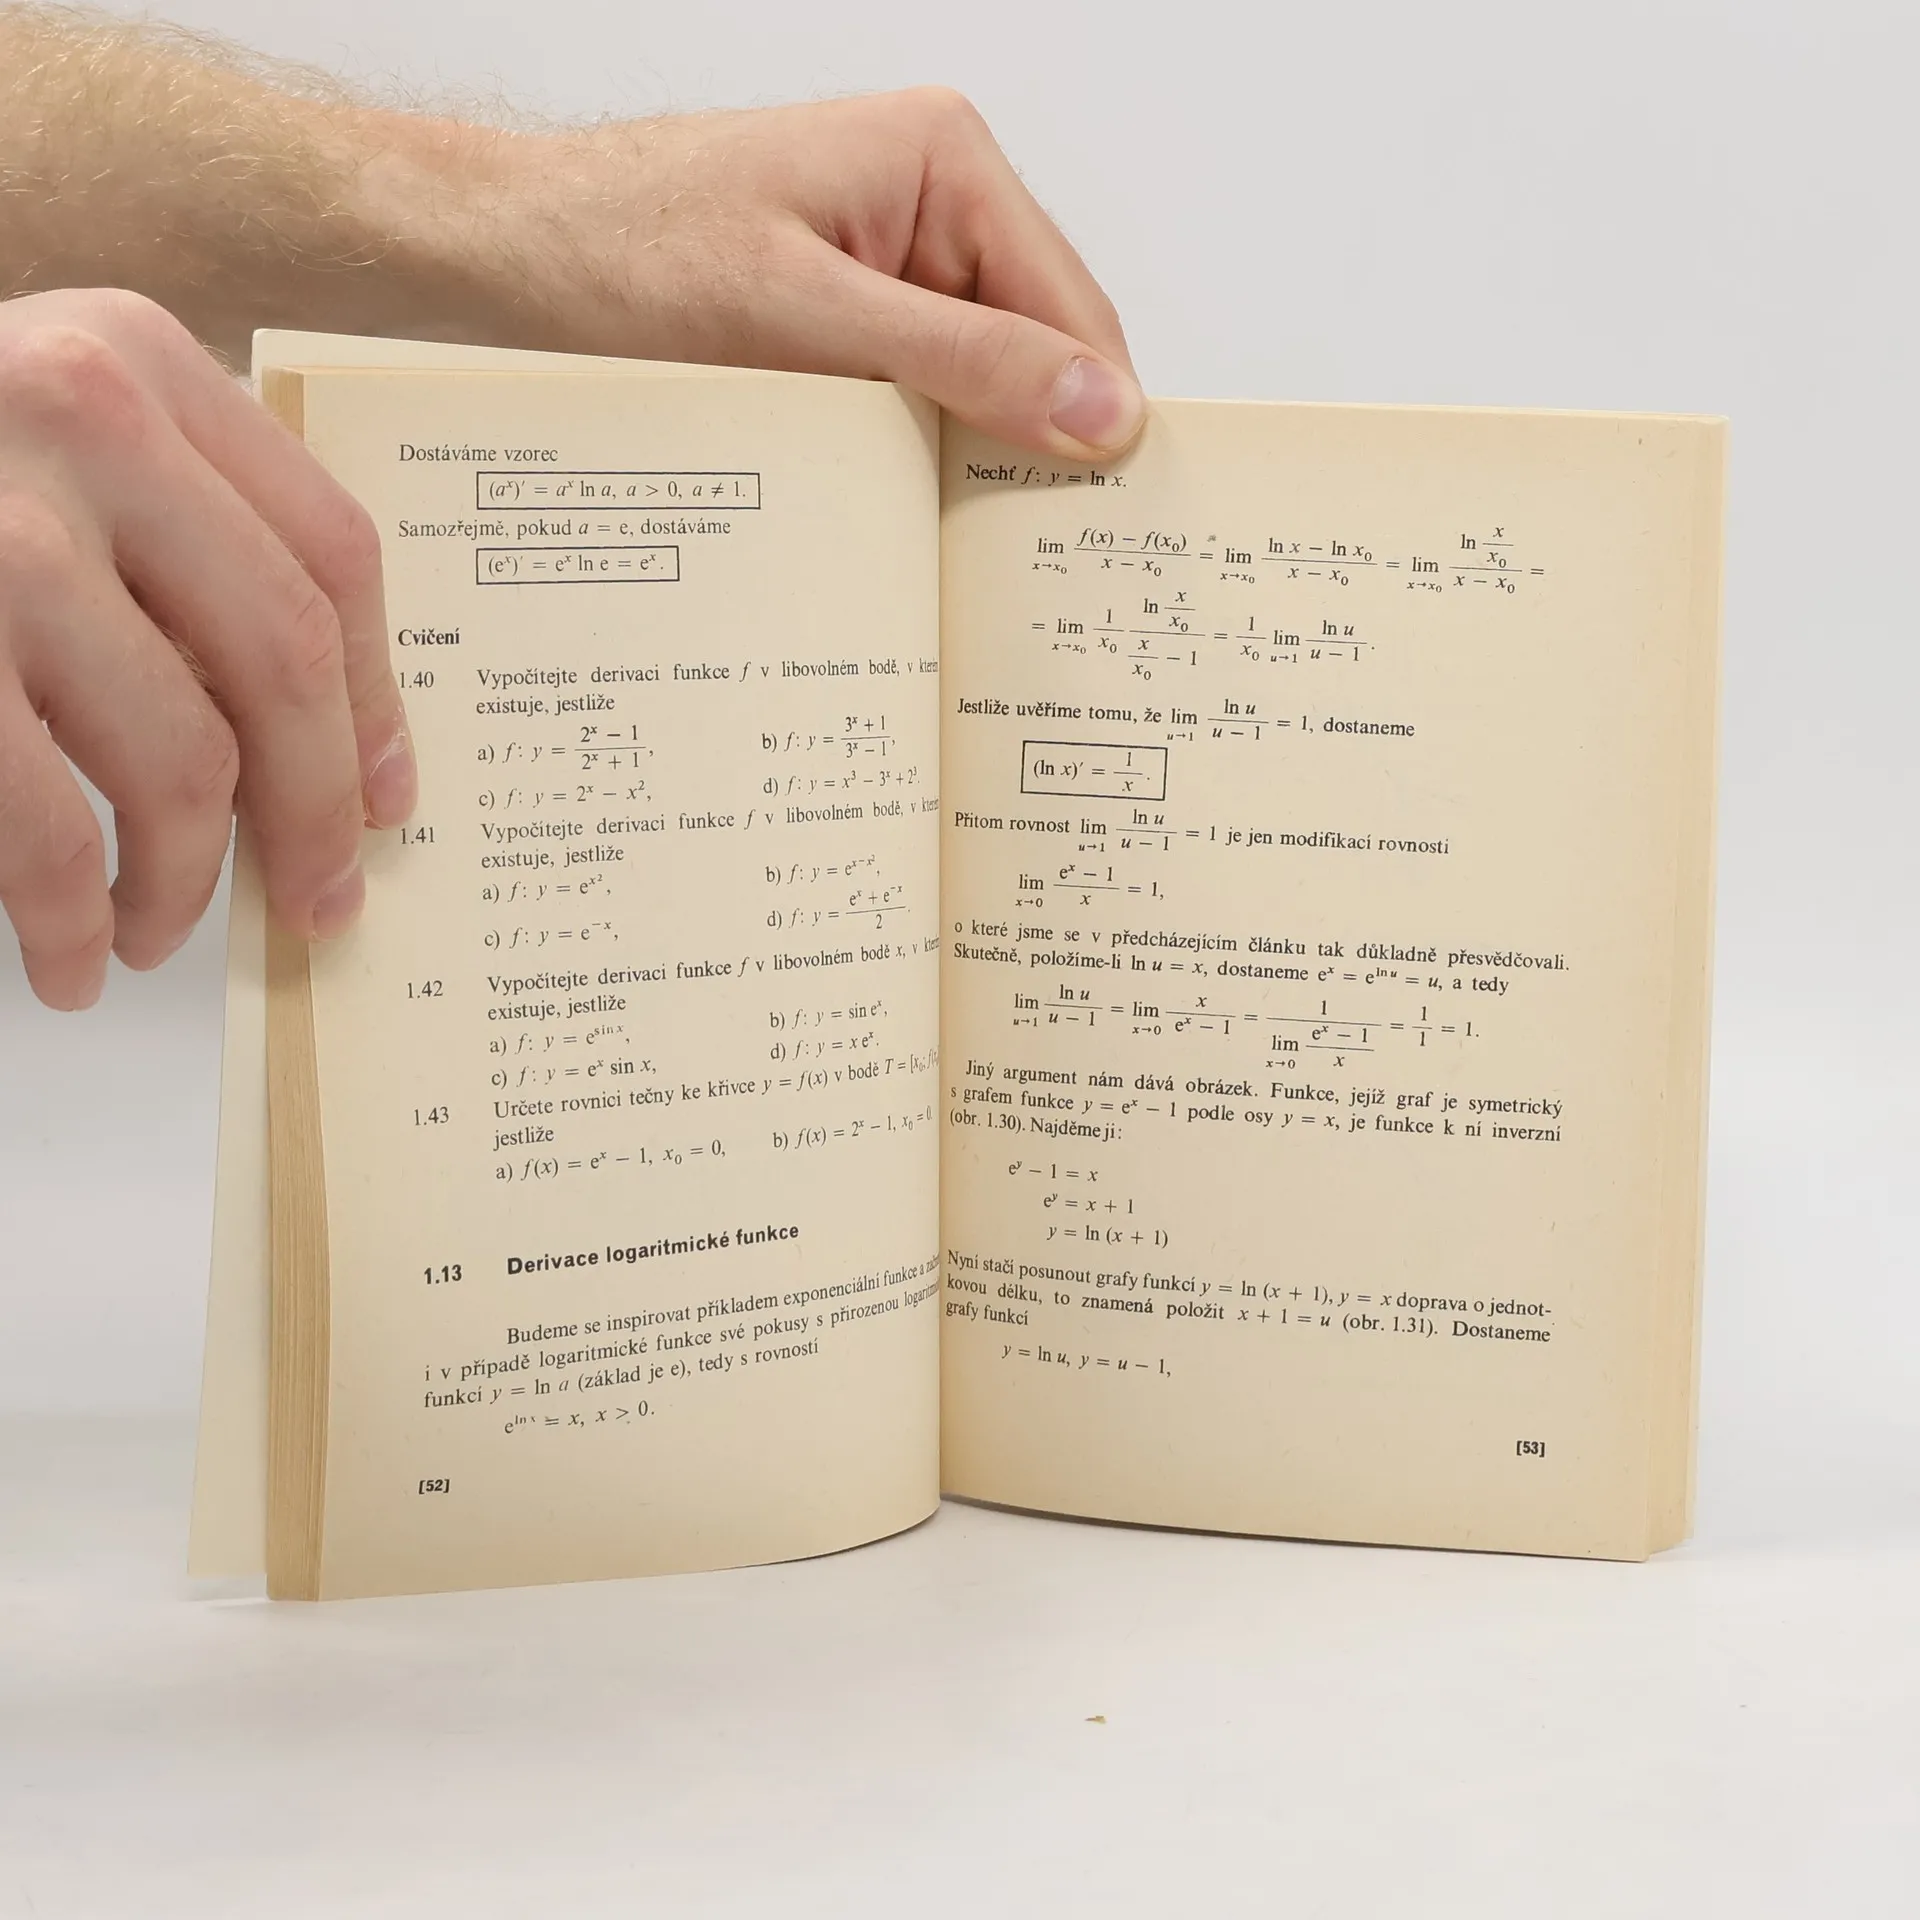 Dostáváme vzorec
(aˣ)′ = aˣ ln a, a > 0, a ≠ 1.
Samozřejmě, pokud a = e, dostáváme
(eˣ)′ = eˣ ln e = eˣ.
Cvičení
1.40 Vypočítejte derivaci funkce f v libovolném bodě, v
existuje, jestliže
a) f: y = (2ˣ − 1)/(2ˣ + 1), b) f: y = (3ˣ + 1)/(3ˣ − 1),
c) f: y = 2ˣ − x², d) f: y = x³ − 3ˣ +
1.41 Vypočítejte derivaci funkce f v libovolném bodě, v
existuje, jestliže
a) f: y = e^(x²), b) f: y = e^(x−x²),
c) f: y = e⁻ˣ, d) f: y = (eˣ + e⁻ˣ)/2.
1.42 Vypočítejte derivaci funkce f v libovolném bodě x, v
existuje, jestliže
a) f: y = e^(sin x), b) f: y = sin eˣ,
c) f: y = eˣ sin x, d) f: y = x eˣ.
1.43 Určete rovnici tečny ke křivce y = f(x) v bodě T = [x₀;
jestliže
a) f(x) = eˣ − 1, x₀ = 0, b) f(x) = 2ˣ − 1, x₀ = 0.
1.13 Derivace logaritmické funkce
Budeme se inspirovat příkladem exponenciální funkce a
i v případě logaritmické funkce své pokusy s přirozenou
funkcí y = ln a (základ je e), tedy s rovností
e^(ln x) = x, x > 0.
[52]
Nechť f: y = ln x.
lim x→x₀ (f(x) − f(x₀))/(x − x₀) = lim x→x₀ (ln x − ln x₀)/(x − x₀) = lim x→x₀ (ln x/x₀)/(x − x₀) =
= lim x→x₀ 1/x₀ (ln x/x₀)/(x/x₀ − 1) = 1/x₀ lim u→1 ln u/(u − 1).
Jestliže uvěříme tomu, že lim u→1 ln u/(u − 1) = 1, dostaneme
(ln x)′ = 1/x.
Přitom rovnost lim u→1 ln u/(u − 1) = 1 je jen modifikací rovnosti
lim x→0 (eˣ − 1)/x = 1,
o které jsme se v předcházejícím článku tak důkladně přesvědčovali.
Skutečně, položíme-li ln u = x, dostaneme eˣ = e^(ln u) = u, a tedy
lim u→1 ln u/(u − 1) = lim x→0 x/(eˣ − 1) = 1/(lim x→0 (eˣ − 1)/x) = 1/1 = 1.
Jiný argument nám dává obrázek. Funkce, jejíž graf je symetrický
s grafem funkce y = eˣ − 1 podle osy y = x, je funkce k ní inverzní
(obr. 1.30). Najděme ji:
eʸ − 1 = x
eʸ = x + 1
y = ln (x + 1)
Nyní stačí posunout grafy funkcí y = ln (x + 1), y = x doprava o jednot-
kovou délku, to znamená položit x + 1 = u (obr. 1.31). Dostaneme
grafy funkcí
y = ln u, y = u − 1,
[53]